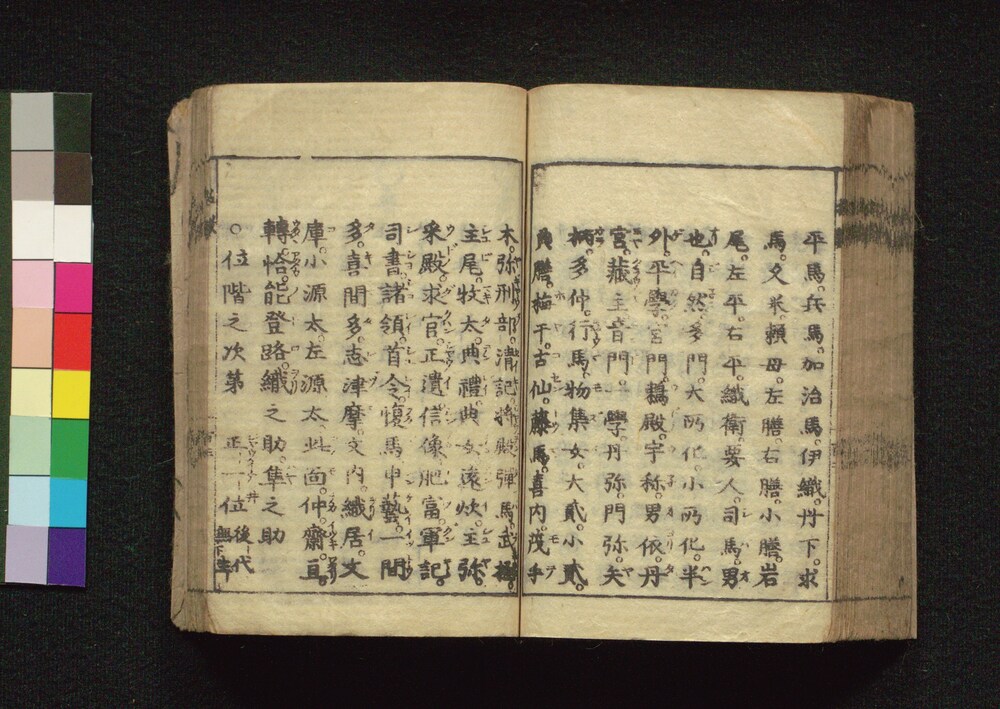 平馬。兵馬。加治馬。伊織。丹下。求
馬。久米。頼母。左膳。右膳。小膳。岩
尾。左平。右平。織衛。要人。司馬。男
也。自然。多門。大所化。小所化。半
外。平學。宮門。鵜殿。宇称。男依。丹
宮。蔵主。音門。學。丹弥。門弥。矢
柄。多仲。行馬。物集女。大貳。小貳。
膳。梅干。古仙。藤馬。喜内。茂手
木。弥刑部。清記。将殿。彈馬。武極。
主尾。牧太。典禮。典女。遠炊。主弥。
采殿。求官。正遺。信像。肥富。軍記。
司書。諸領。首令。愎馬。中藝。一間
多。喜間多。志津摩。文内。織居。文
庫。小源太。左源太。此面。仲齋。豆
轉。恰。能登路。織之助。隼之助
○位階之次第 正一位 後代無下幸